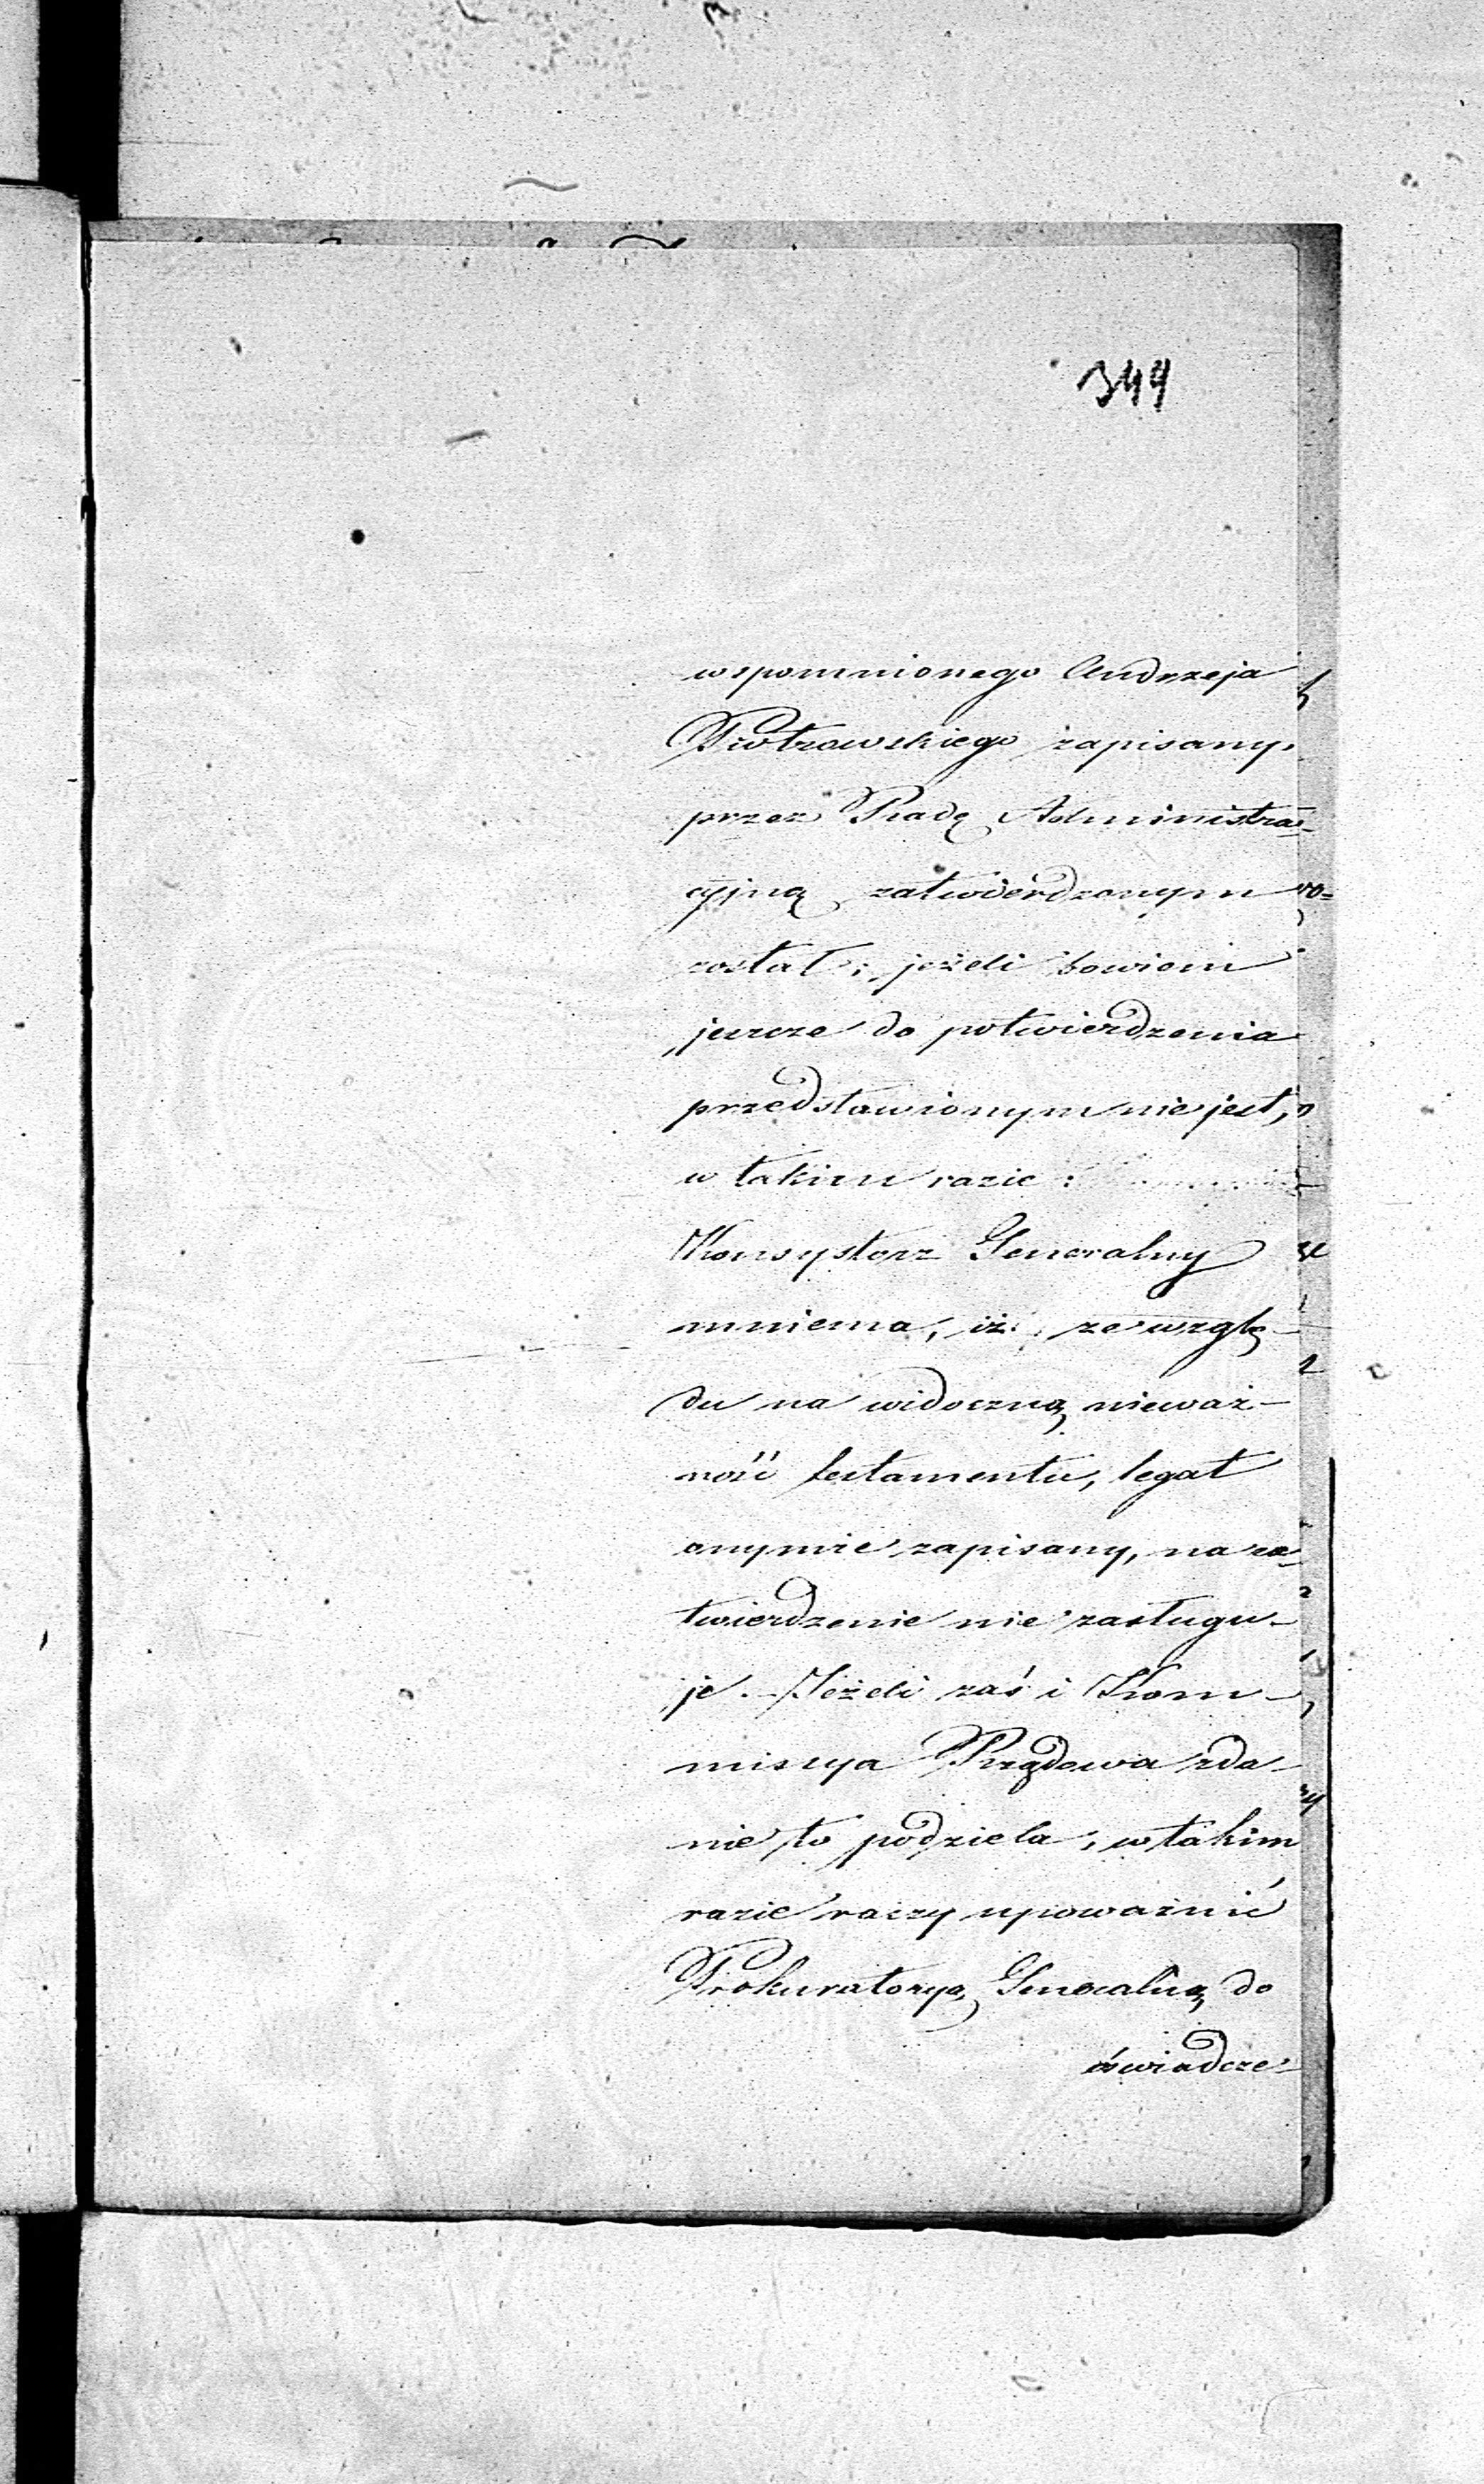 344
wspomnionego Andrzeja
Piotrowskiego zapisany,
przez Radę Administra-
cyjną zatwierdzonym
został; jeżeli bowiem
jeszcze do potwierdzenia
przedstawionym nie jest,
w takim razie:
Konsystorz Generalny
mniema, iż ze wzglę-
du na widoczną nieważ-
ność testamentu, legat
onymże zapisany, na za-
twierdzenie nie zasługu-
je. – Jeżeli zaś i Kom-
missya Rządowa zda-
nie to podziela, w takim
razie raczy upoważnić
Prokuratoryą Generalną do
oświadcze-